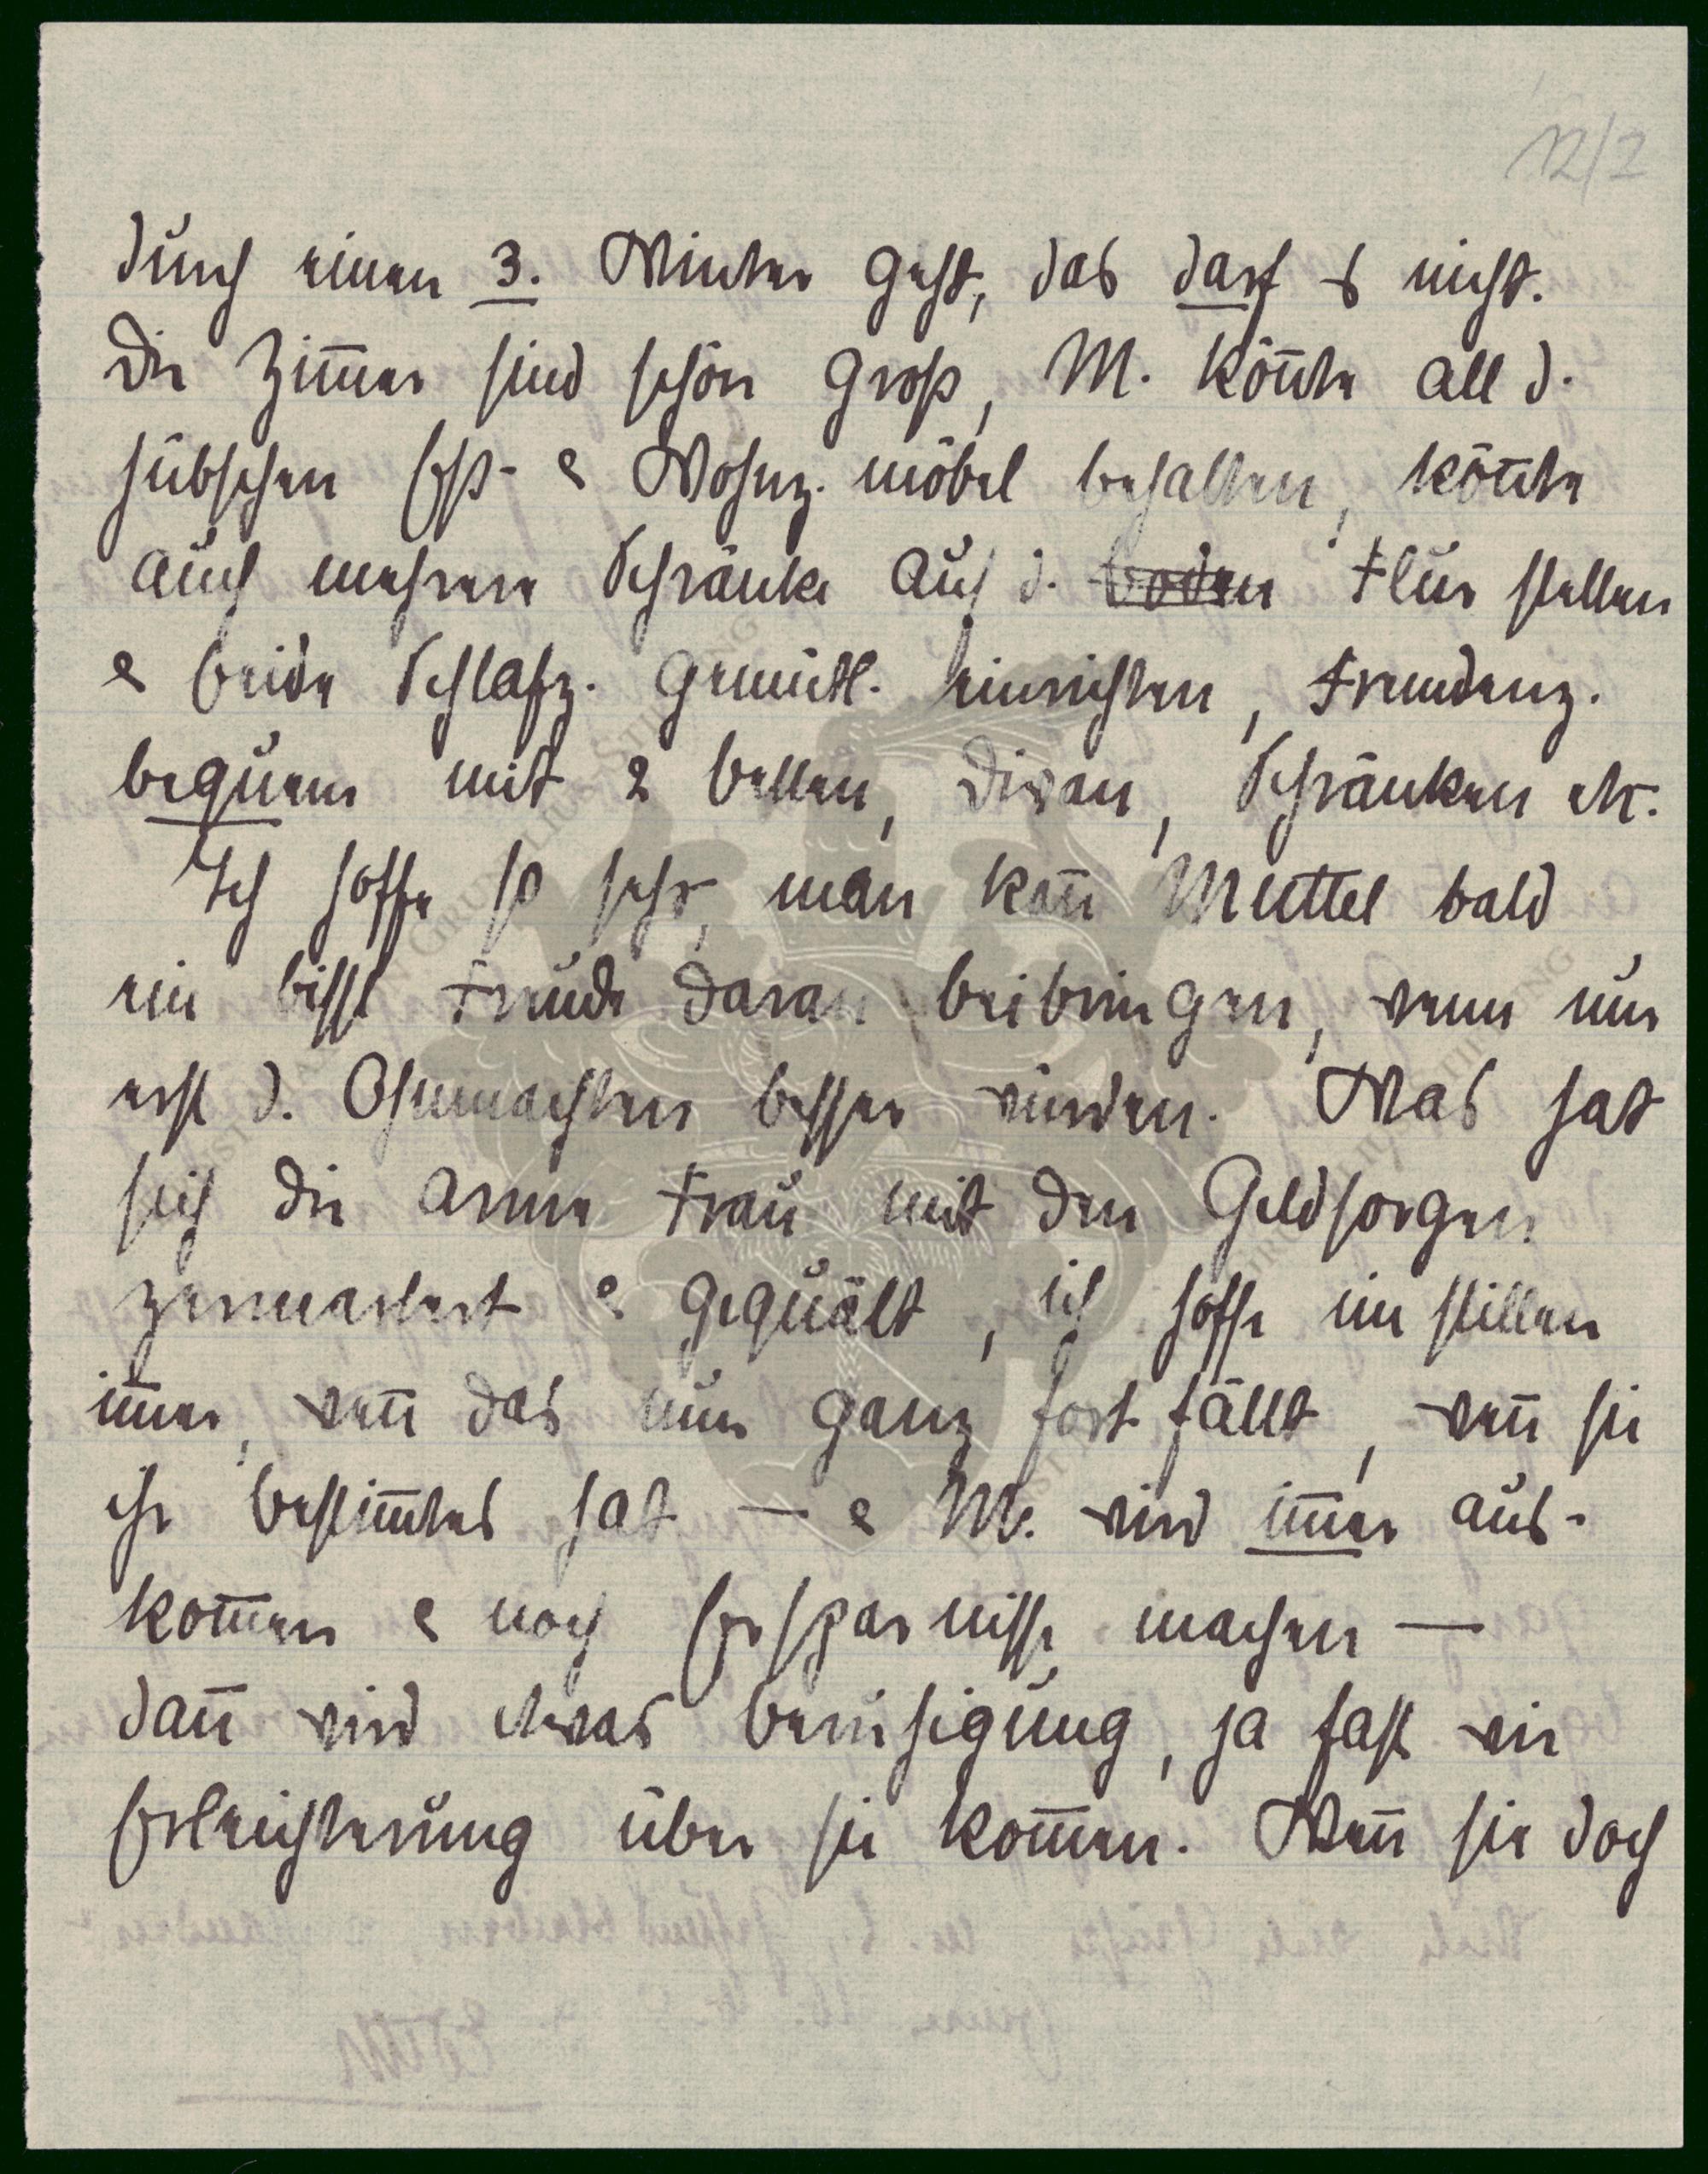 12/2
durch einen 3. Winter geht, das darf es nicht.
Die Zim̅er sind schön groß, M. kön̅te all d.
hübschen Eß- & Wohnz. möbel behalten, kön̅te
auch mehrere Schränke auf d. boden Flur stellen
& beide Schlafz. gemütl. einrichten, Fremdenz.
bequem mit 2 betten, Divan, Schränken etc.
Ich hoffe so sehr, man kan̅ Muttel bald
ein bissl Freude daran beibringen, wenn nur
erst d. Ohnmachten besser würden. Was hat
sich die arme Frau mit den Geldsorgen
zermartert & gequält, ich hoffe im stillen
im̅er, wen̅ das nun ganz fort fällt, wen̅ sie
ihr bestim̅tes hat — & M. wird im̅er aus-
kom̅en & noch Ersparnisse machen —
dan̅ wird etwas beruhigung, ja fast wie
Erleichterung über sie kom̅en. Wen̅ sie doch